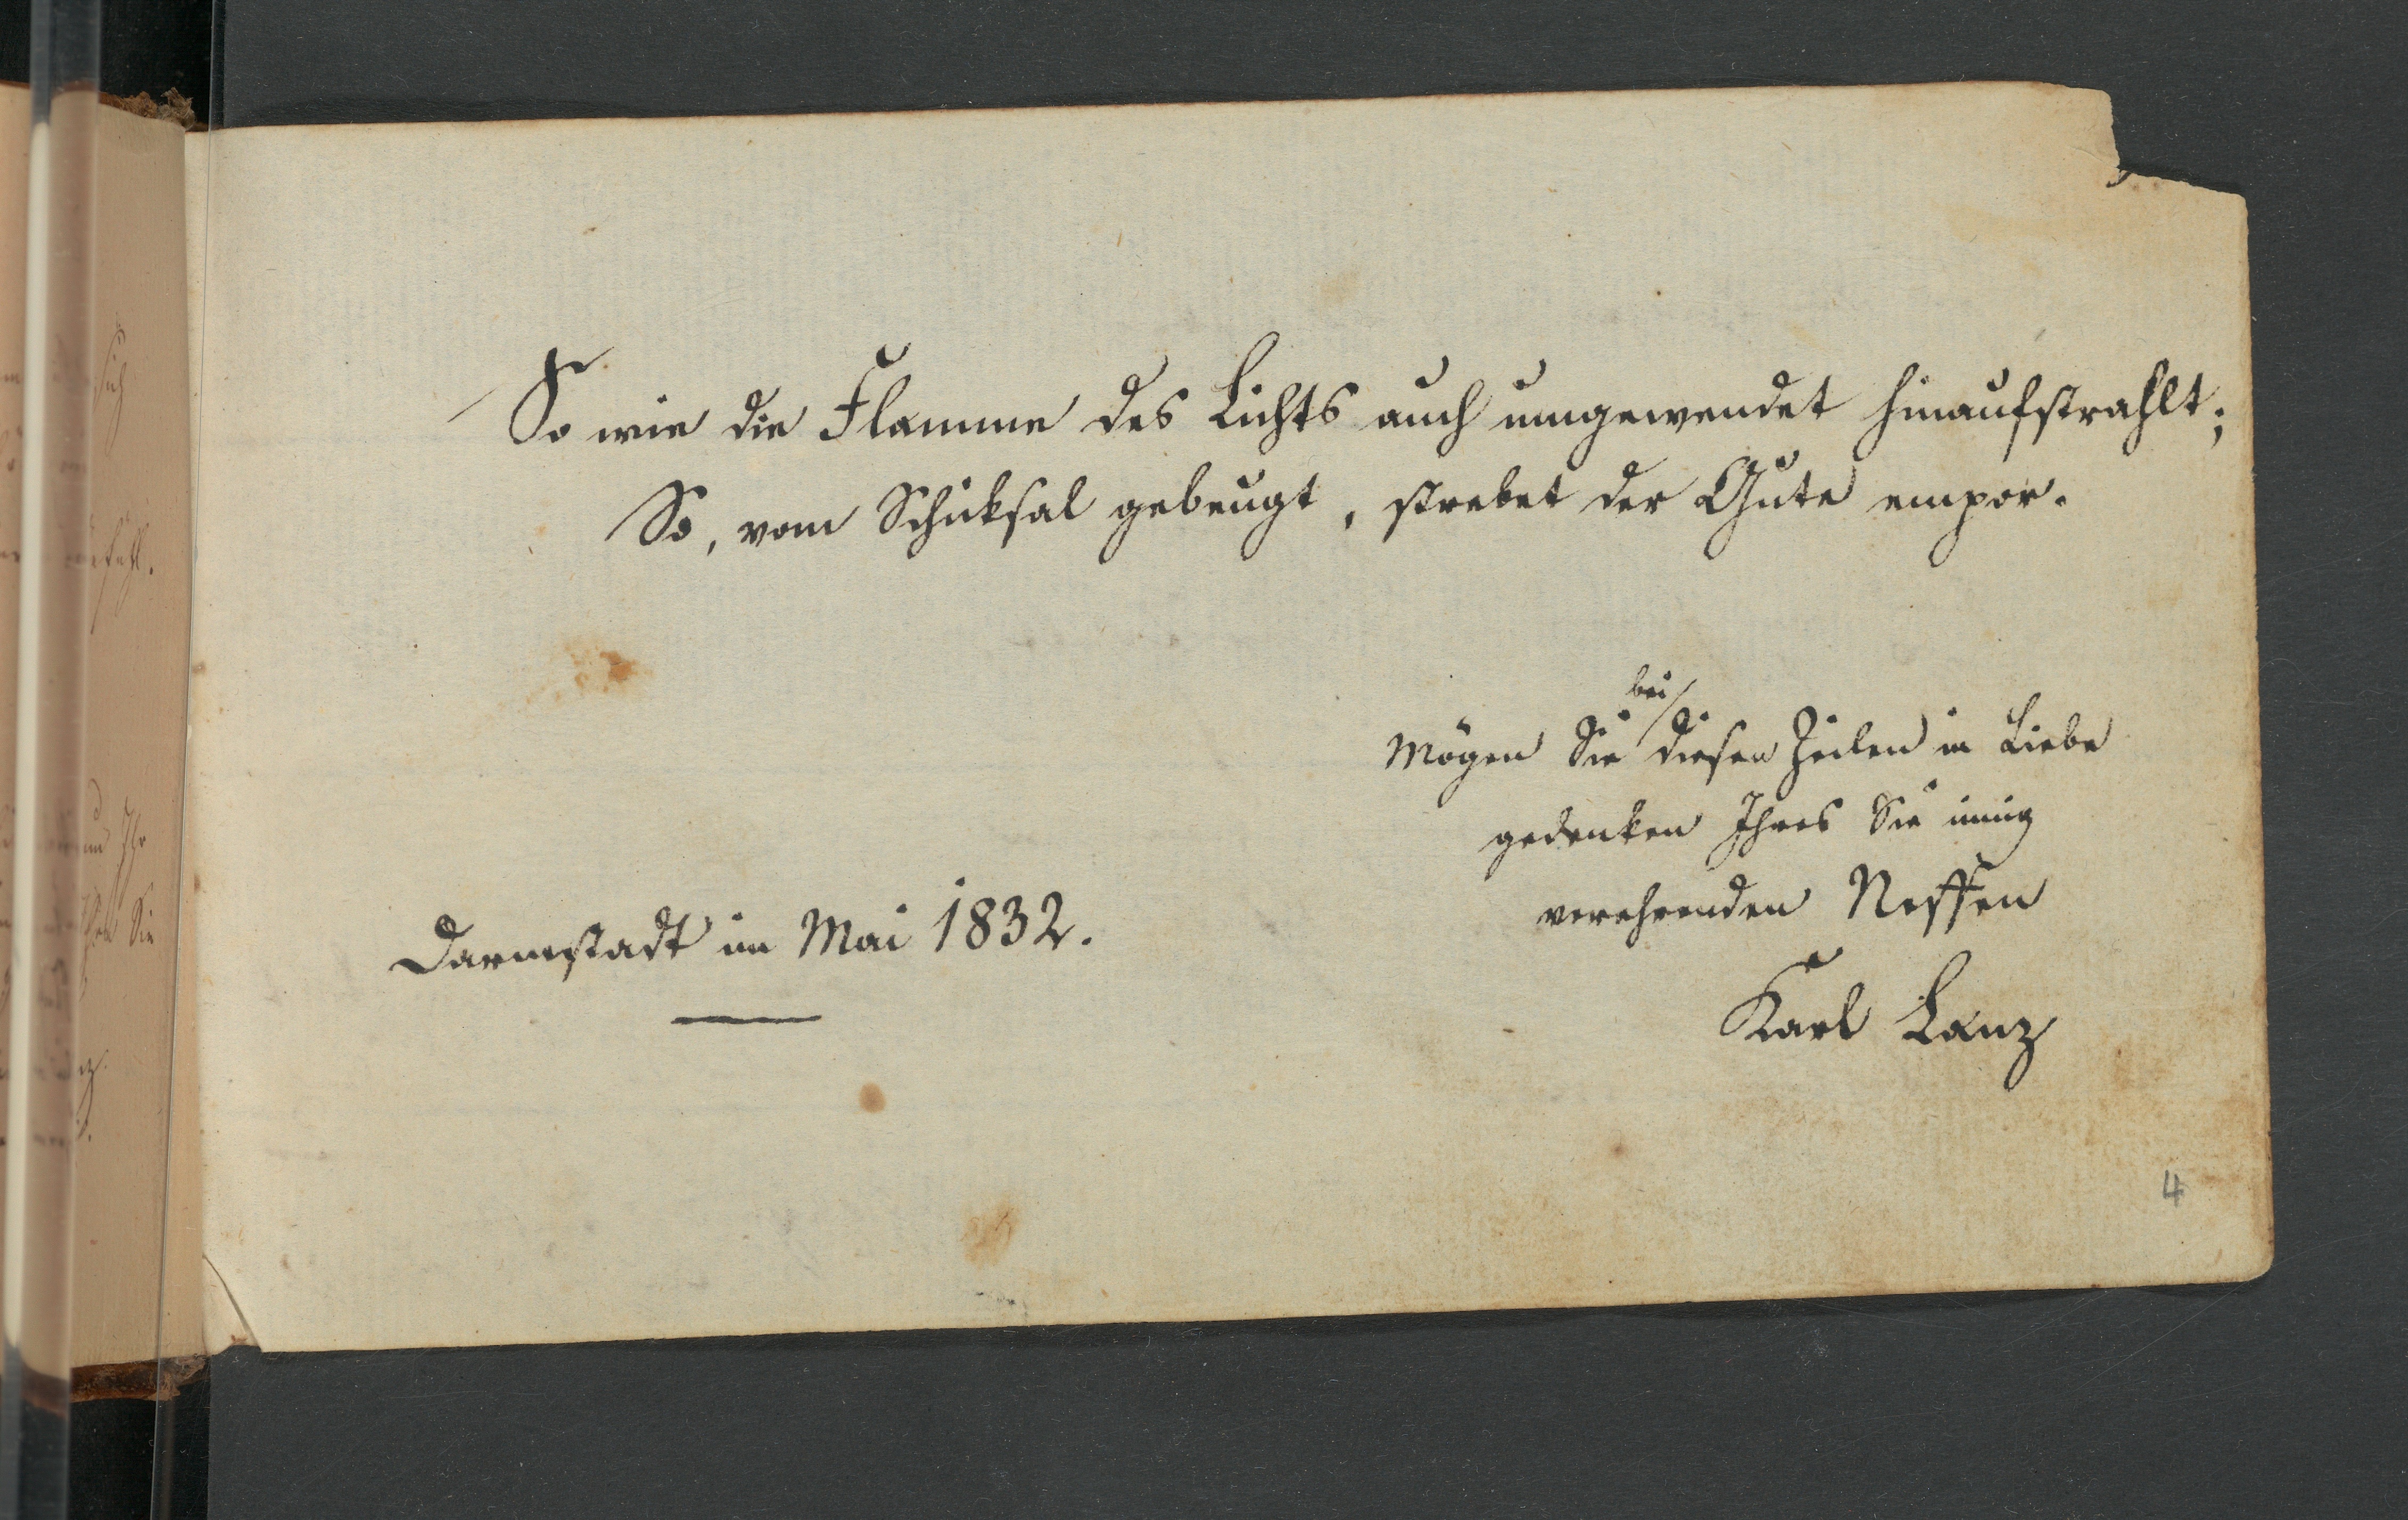 So wie die Flamme des Lichts auch umgewendet hinaufstrahlt;
So, vom Schicksal gebeugt, strebet der Gute empor.
bei
Mögen Sie diesen Zeilen in Liebe
gedenken Ihres Sie innig
verehrenden Neffen
Karl Lanz
Darmstadt im Mai 1832.
4